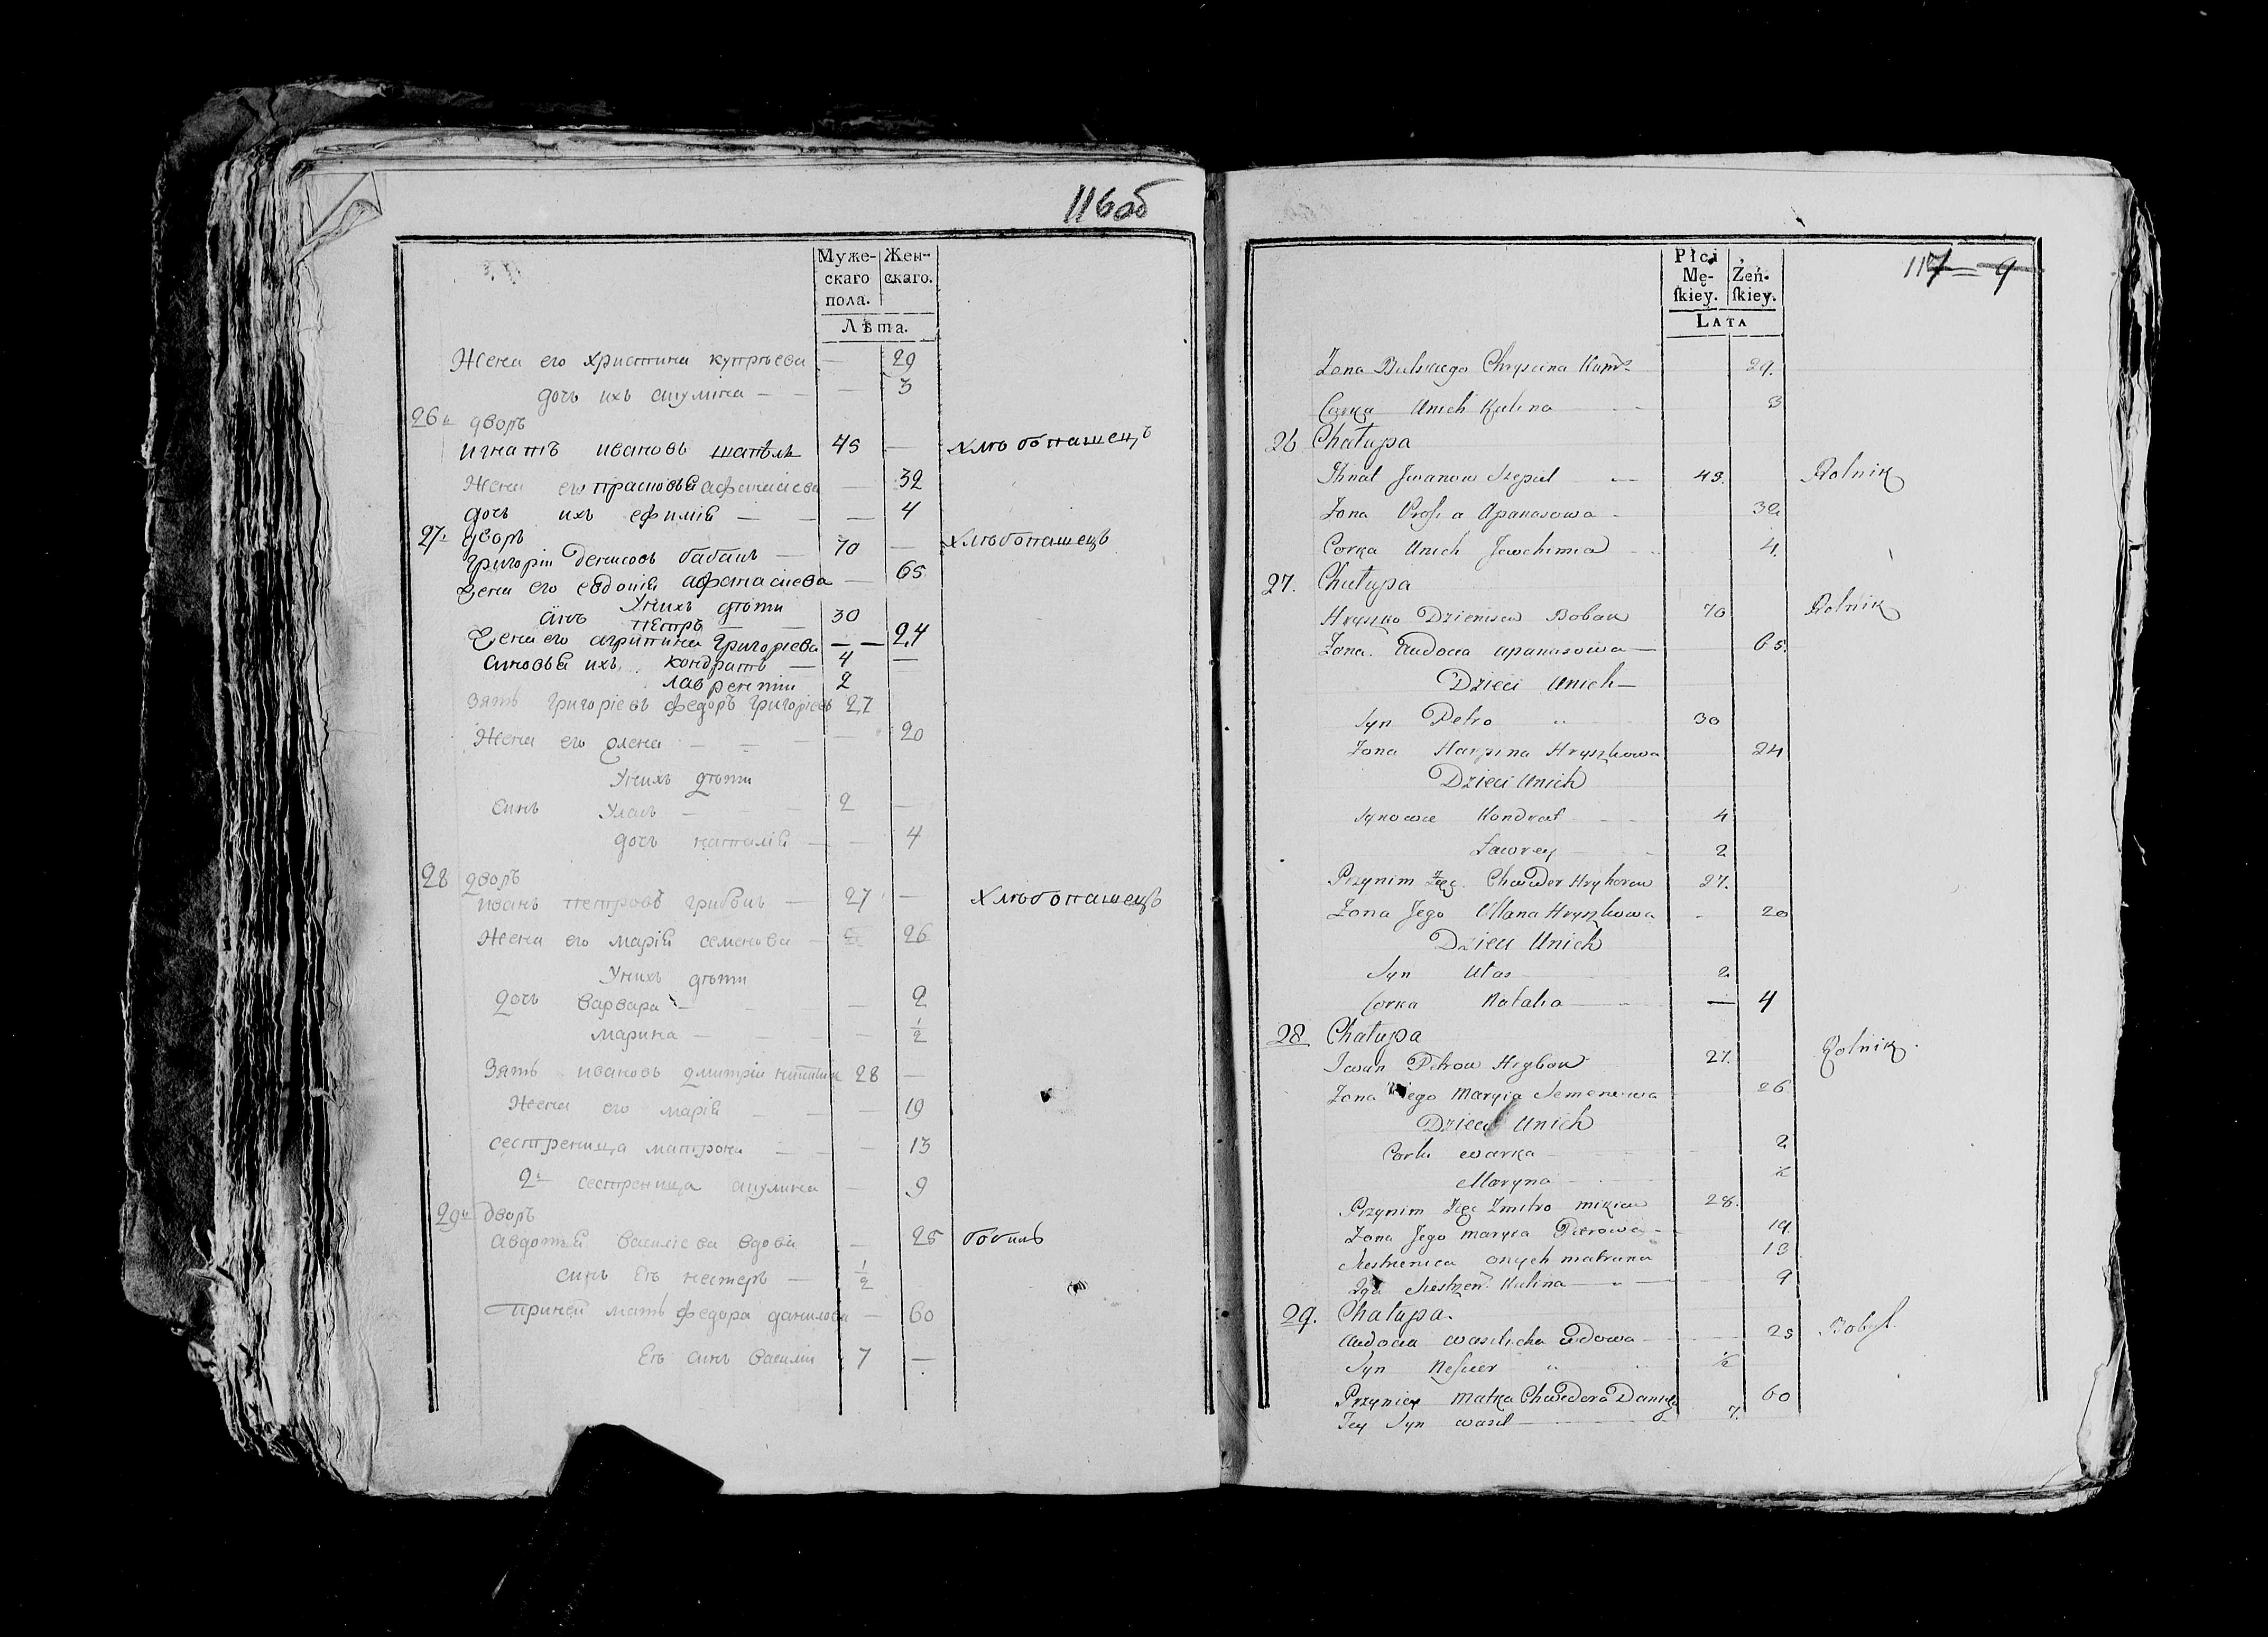 116об
Муже- Жен-
скаго скаго.
пола.
Лѣта.
Жена его христина купрѣева — 29
дочь ихъ акулина — — 3
26й дворъ
игнатъ ивановъ шапѣль 45 — хлѣбопашецъ
Жена его прасковья афанасиева — 32
дочь ихъ ефимія — — — 4
27й дворъ
григорій денисовъ бабакъ — 70 — хлѣбопашецъ
Жена его евдокия афанасиева — 65
Унихъ дѣти
синъ петръ — — 30
Жена его агрипина григориева — — 24
синовья ихъ кондратъ — 4 —
лаврентій 2
Зять григориевъ федоръ григориевъ 27
Жена его олена — — — — 20
Унихъ дѣти
синъ Улас — — 2 —
дочь наталія — — 4
28 дворъ
иванъ петровъ грибокъ — 27 — хлѣбопашецъ
Жена его марія семенова — 26
Унихъ дѣти
дочь варвара — — — 2
марина — — — 1/2
Зять ивановъ дмитрій 28 —
Жена его марія — — — 19
сестреница матрона — — — 13
2я сестреница акулина — 9
29й дворъ
авдотья василиева вдова — 25 бобиль
синъ Еѣ нестеръ — 1/2
приней мать федора данилова — 60
Еѣ синъ василій 7 —
117 9
Płci
Mę- Żeń-
skiey. skiey.
LATA
Zona Chryscina 29.
Corka Unich Kulina 3
26 Chałupa
Ihnat Jwanow Szepiel 45. Rolnik
Zona Apanasowa 32
Corka Unich Jewchimia 4.
27. Chałupa
Hryszko Dzienisow Boban 70 Rolnik
Zona Audocia apanasowa — 65.
Dzieci Unich —
Syn Petro 30
Zona Harpina Hryszkowa 24
Dzieci Unich
Synowie Kondrat 4
Ławrey 2
Przynim Zięć Chwieder Hryhorow 27.
Zona Jego Ollana Hryszkowa - 20
Dzieci Unich
Syn Ułas 2
Corka Natalia — — 4
28. Chałupa
Jwan Petrow Hrybow 27. Rolnik.
Zona Jego Maryia Semenowa 26
Dzieci Unich
Corki warka 2
Maryna ½
Przynim Zięć Zmitro mikiow 28.
Zona Jego maryia Petrowa — 19
Siestrenica onych matruna 13
2ga Siestrzen: Kulina — 9
29. Chałupa.
Audocia wasilicha wdowa — 25 Bobyl.
Syn Nester ½
Przyniey Matka Chwiedora Daniła 60
Jey Syn wasil 7.